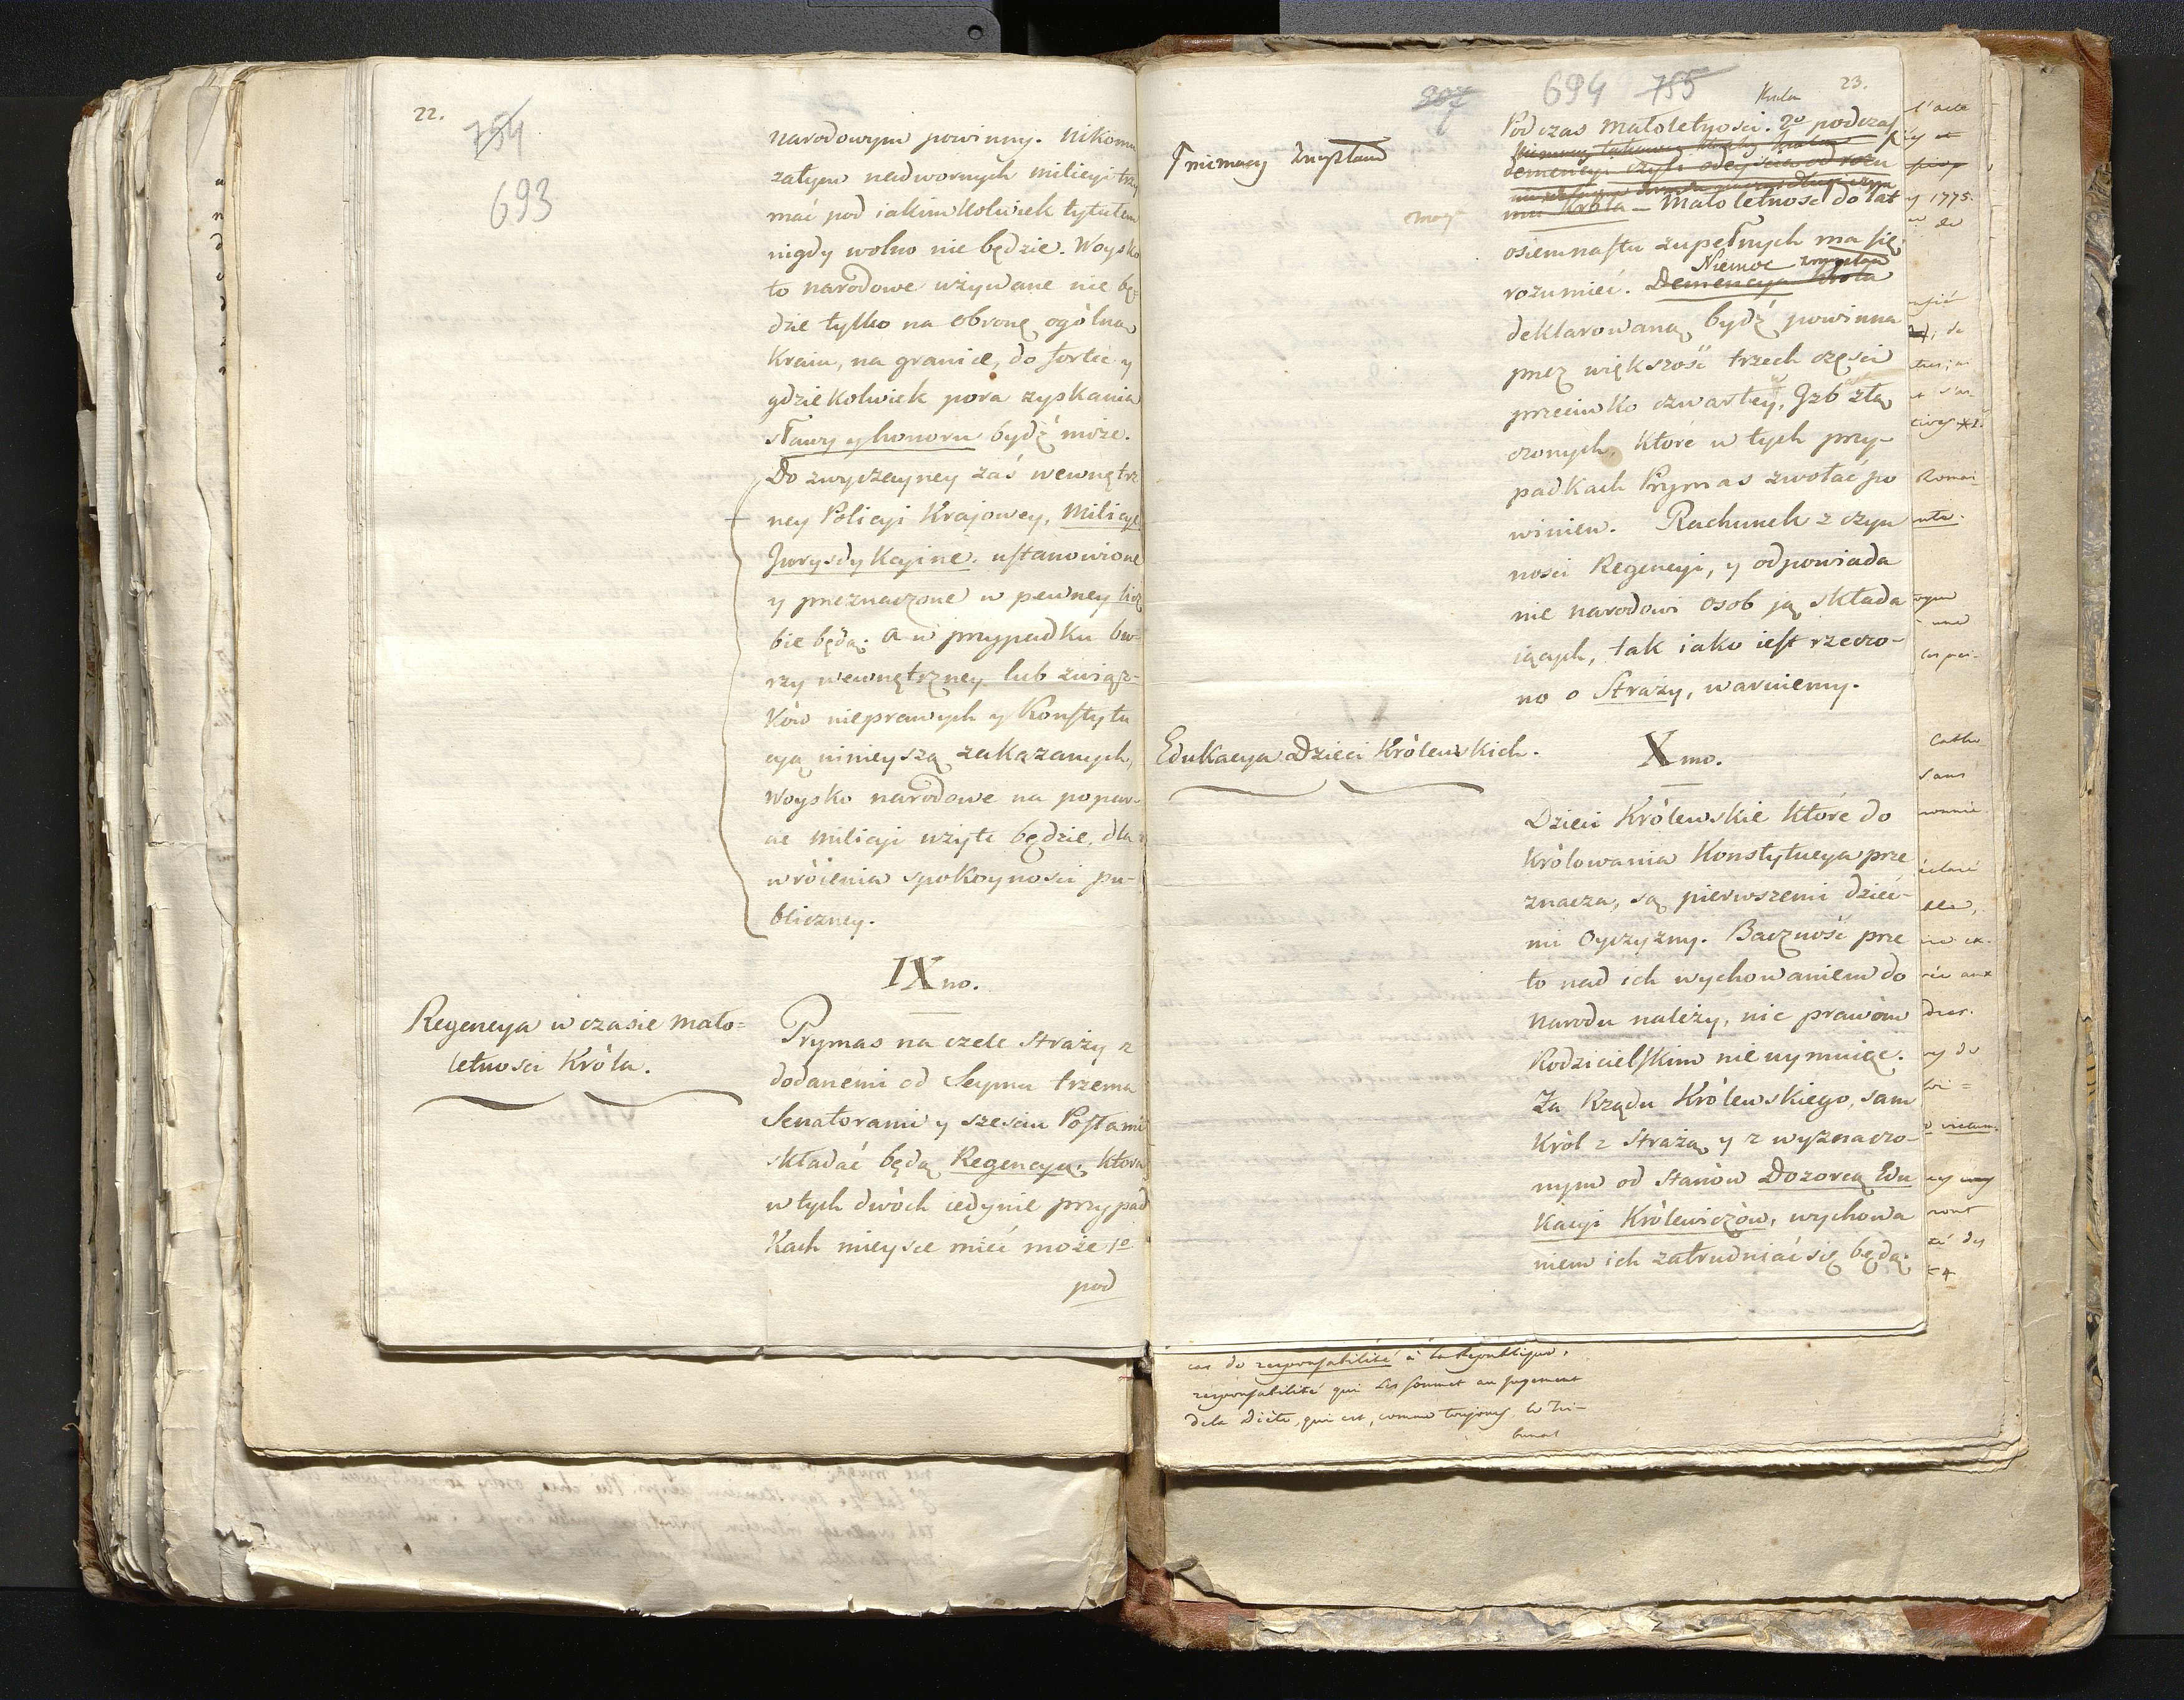 22.
754
693
narodowym powinny. Nikomu
zatym nadwornych milicyi trzy
mać pod iakimkolwiek tytułem
nigdy wolno nie będzie. Woysko
to narodowe używane nie bę
dzie tylko na obronę ogólną
Kraiu, na granice, do fortec y
gdziekolwiek pora zyskania
sławy y honoru bydź może.
Do zwyczayney zaś wewnętrz
ney Policyi Krajowey, Milicye
Jurysdykcyine ustanowione
y przeznaczone w pewney licz
bie będą. a w przypadku bu-
rzy wewnętrzney lub związ-
ków nieprawych y Konstytu
cyą ninieyszą zakazanych,
Woysko narodowe na popar-
cie milicyi użyte będzie, dla
wrócenia spokoyności pu-
bliczney.
IX no.
Regencya w czasie mało=
letności Króla.
Prymas na czele Straży z
dodanemi od Seymu trzema
Senatorami y sześciu Posłami
składać będą Regencyą, która
w tych dwóch iedynie przypad
kach mieysce mieć może 1o
pod
307 694 755 23.
niemocy zmysłów
Króla
Pod czas małoletności. 2o podczas
demencyi czyli odeyścia od rozu
mu Króla – Małoletność do lat
osiemnastu zupełnych ma się
Niemoc zmysłów
rozumieć. Demencya Króla
deklarowaną bydź powinna
przez większość trzech części
przeciwko czwartey, Jzb złą
czonych, które w tych przy-
padkach Prymas zwołać po
winien. Rachunek z czyn
ności Regencyi, y odpowiada
nie narodowi osob ją składa
iących, tak iako iest rzeczo-
no o Straży, waruiemy.
Edukacya Dzieci Królewskich.
X mo.
Dzieci Królewskie które do
Królowania Konstytucya prze
znacza, są pierwszemi dzieć-
mi Oyczyzny. Baczność prze
to nad ich wychowaniem do
Narodu należy, nic prawom
Rodzicielskim nie uymuiąc.
Za Rządu Królewskiego, sam
Król z Strażą y z wyznaczo-
nym od Stanów Dozorcą Edu
kacyi Królewiczów, wychowa
niem ich zatrudniać się będą.
l'acte
y 1775.
de
Romai
Catho
sans
rée aux
cas de responsabilité à la République,
responsabilité qui les soumet au jugement
de la Diète, qui est, comme toujours, le Tri-
bunal